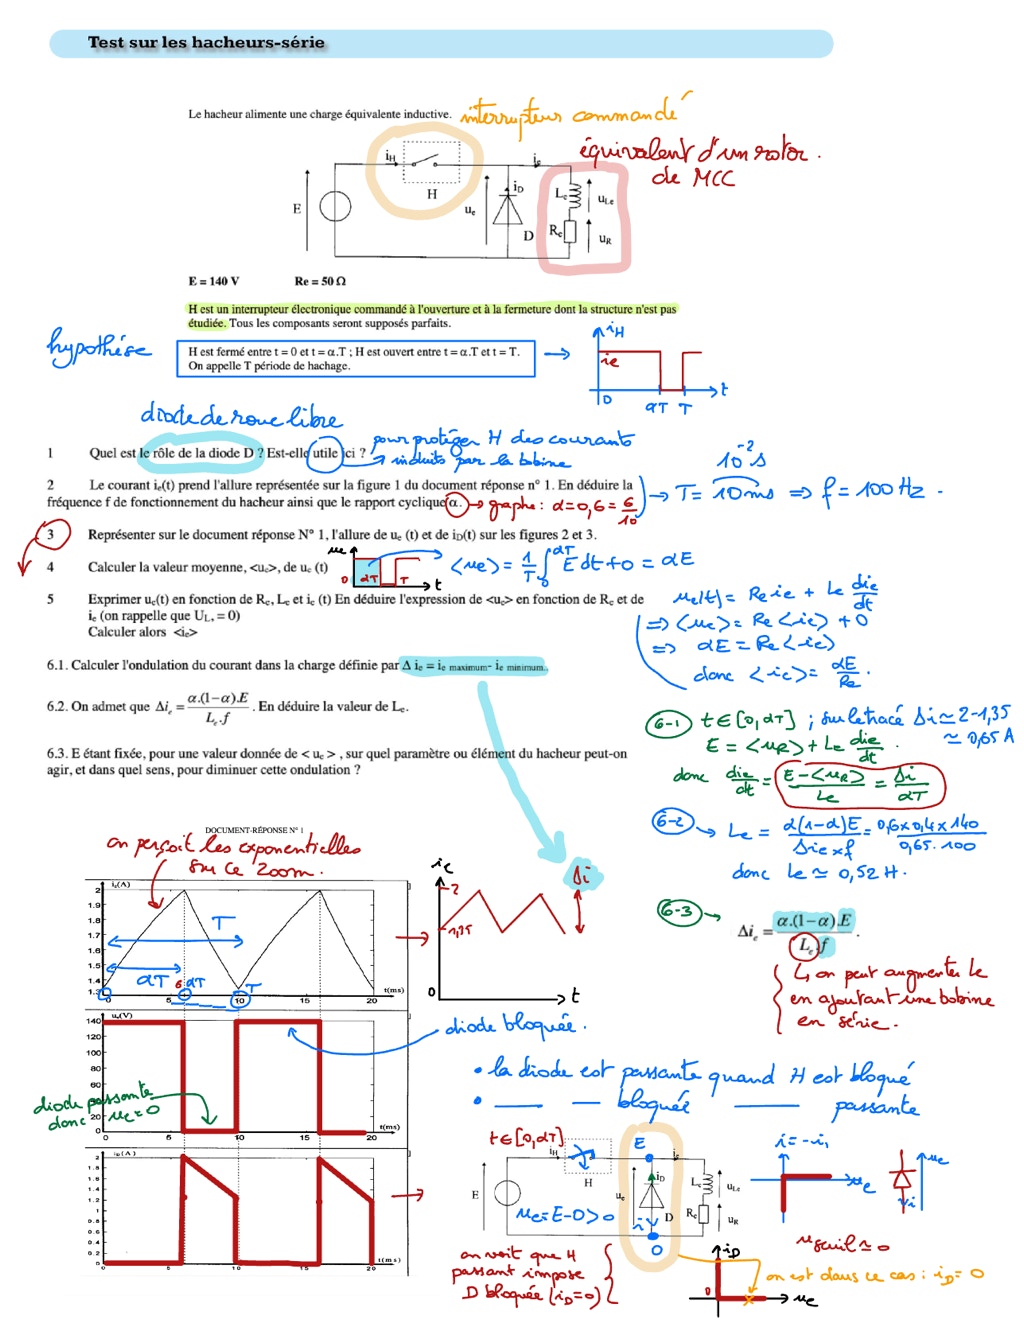 Test sur les hacheurs-série
Le hacheur alimente une charge équivalente inductive.
interrupteur commandé
équivalent d'un rotor.
de MCC
iH
H
E
ue
iD
D
ie
Le
Re
uLe
uR
E = 140 V Re = 50 Ω
H est un interrupteur électronique commandé à l'ouverture et à la fermeture dont la structure n'est pas
étudiée. Tous les composants seront supposés parfaits.
hypothèse
H est fermé entre t = 0 et t = α.T ; H est ouvert entre t = α.T et t = T.
On appelle T période de hachage.
iH
ie
0 αT T t
diode de roue libre
1 Quel est le rôle de la diode D ? Est-elle utile ici ?
pour protéger H des courants
induits par la bobine
2 Le courant ie(t) prend l'allure représentée sur la figure 1 du document réponse n° 1. En déduire la
fréquence f de fonctionnement du hacheur ainsi que le rapport cyclique α.
→ graphe : α = 0,6 = 6/10
10⁻² s
T = 10 ms ⇒ f = 100 Hz.
3 Représenter sur le document réponse N° 1, l'allure de ue (t) et de iD(t) sur les figures 2 et 3.
4 Calculer la valeur moyenne, <ue>, de ue (t)
ue
0 αT T t
<ue> = 1/T ∫₀^αT E dt + 0 = αE
5 Exprimer ue(t) en fonction de Re, Le et ie (t) En déduire l'expression de <ue> en fonction de Re et de
ie (on rappelle que UL, = 0)
Calculer alors <ie>
ue(t) = Re ie + Le die/dt
⇒ <ue> = Re <ie> + 0
⇒ αE = Re <ie>
donc <ie> = αE/Re.
6.1. Calculer l'ondulation du courant dans la charge définie par Δ ie = ie maximum- ie minimum.
6.2. On admet que Δie = α.(1−α).E / Le.f . En déduire la valeur de Le.
6.3. E étant fixée, pour une valeur donnée de < ue > , sur quel paramètre ou élément du hacheur peut-on
agir, et dans quel sens, pour diminuer cette ondulation ?
6-1 t ∈ [0, αT] ; sur le tracé Δi ≃ 2 - 1,35
≃ 0,65 A
E = <uR> + Le die/dt.
donc die/dt = E - <uR> / Le = Δi / αT
6-2 → Le = α(1-α)E / Δie × f = 0,6 × 0,4 × 140 / 0,65 . 100
donc Le ≃ 0,52 H.
6-3 → Δie = α.(1−α).E / Le.f .
↳ on peut augmenter Le
en ajoutant une bobine
en série.
DOCUMENT-RÉPONSE N° 1
on perçoit les exponentielles
sur ce zoom.
ie(A)
2
1.9
1.8
1.7
1.6
1.5
1.4
1.3
T
αT
6 αT T
0 5 10 15 20
t(ms)
ie
2
1,35
0 t
Δi
ue(V)
140
120
100
80
60
20
0
0 5 10 15 20
t(ms)
diode bloquée.
diode passante
donc ue = 0
iD(A)
2
1.6
1.2
1
0.8
0.6
0.4
0.2
0
0 5 10 15 20
t(ms)
• la diode est passante quand H est bloqué
• —— — bloquée —— passante
t ∈ [0, αT]
iH
H
E
ue = E - 0 > 0
E
ie
ue
iD
i
D
0
Le
Re
uLe
uR
i = -i₁
ue
ue
i
useuil ≃ 0
on voit que H
passant impose
D bloquée (iD = 0)
iD
0
ue
on est dans ce cas : iD = 0